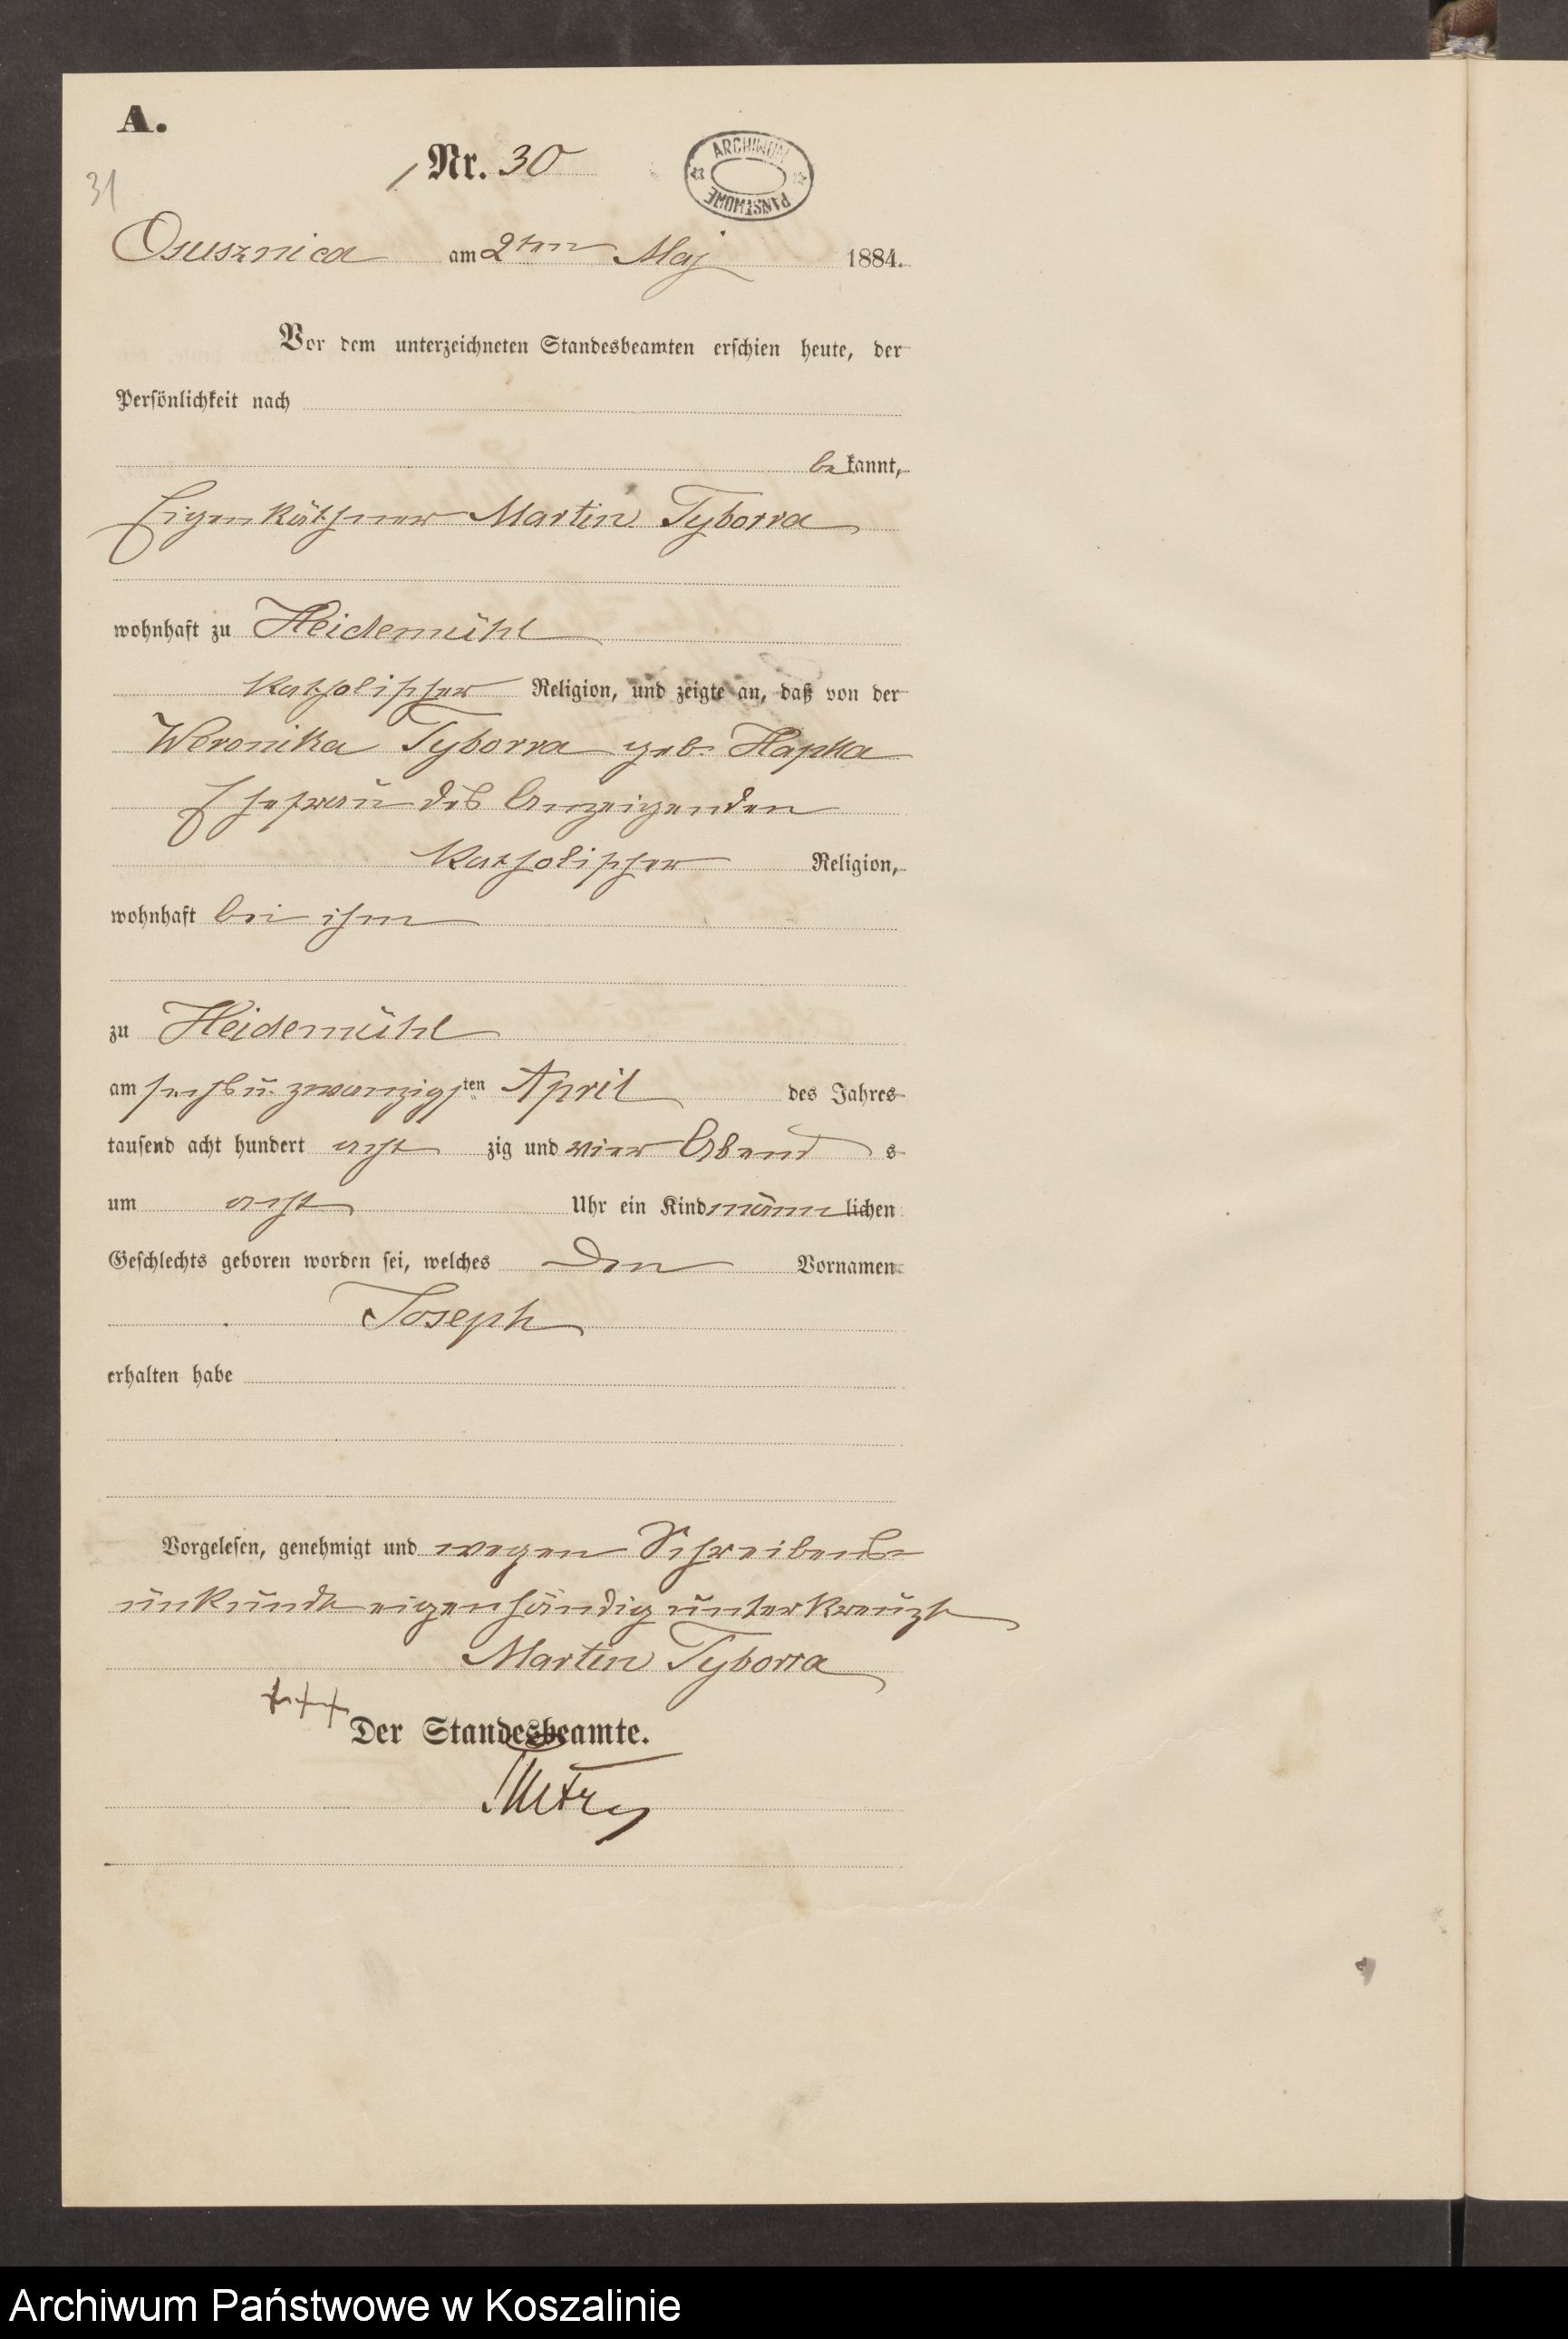 A.
Nr. 30
ARCHIWUM PAŃSTWOWE
31
Osusznica am 2ten Maj 1884.
Vor dem unterzeichneten Standesbeamten erschien heute, der
Persönlichkeit nach
bekannt,
Eigenkäthner Martin Tyborra
wohnhaft zu Heidemühl
katholischer Religion, und zeigte an, daß von der
Weronika Tyborra geb. Hapka
Ehefrau des Anzeigenden
katholischer Religion,
wohnhaft bei ihm
zu Heidemühl
am sechs u. zwanzigsten April des Jahres
tausend acht hundert acht zig und vier Abend s
um acht Uhr ein Kind männlichen
Geschlechts geboren worden sei, welches den Vornamen
Joseph
erhalten habe
Vorgelesen, genehmigt und wegen Schreibens
unkunde eigenhändig unterkreuzt
Martin Tyborra
+++
Der Standesbeamte.
Archiwum Państwowe w Koszalinie